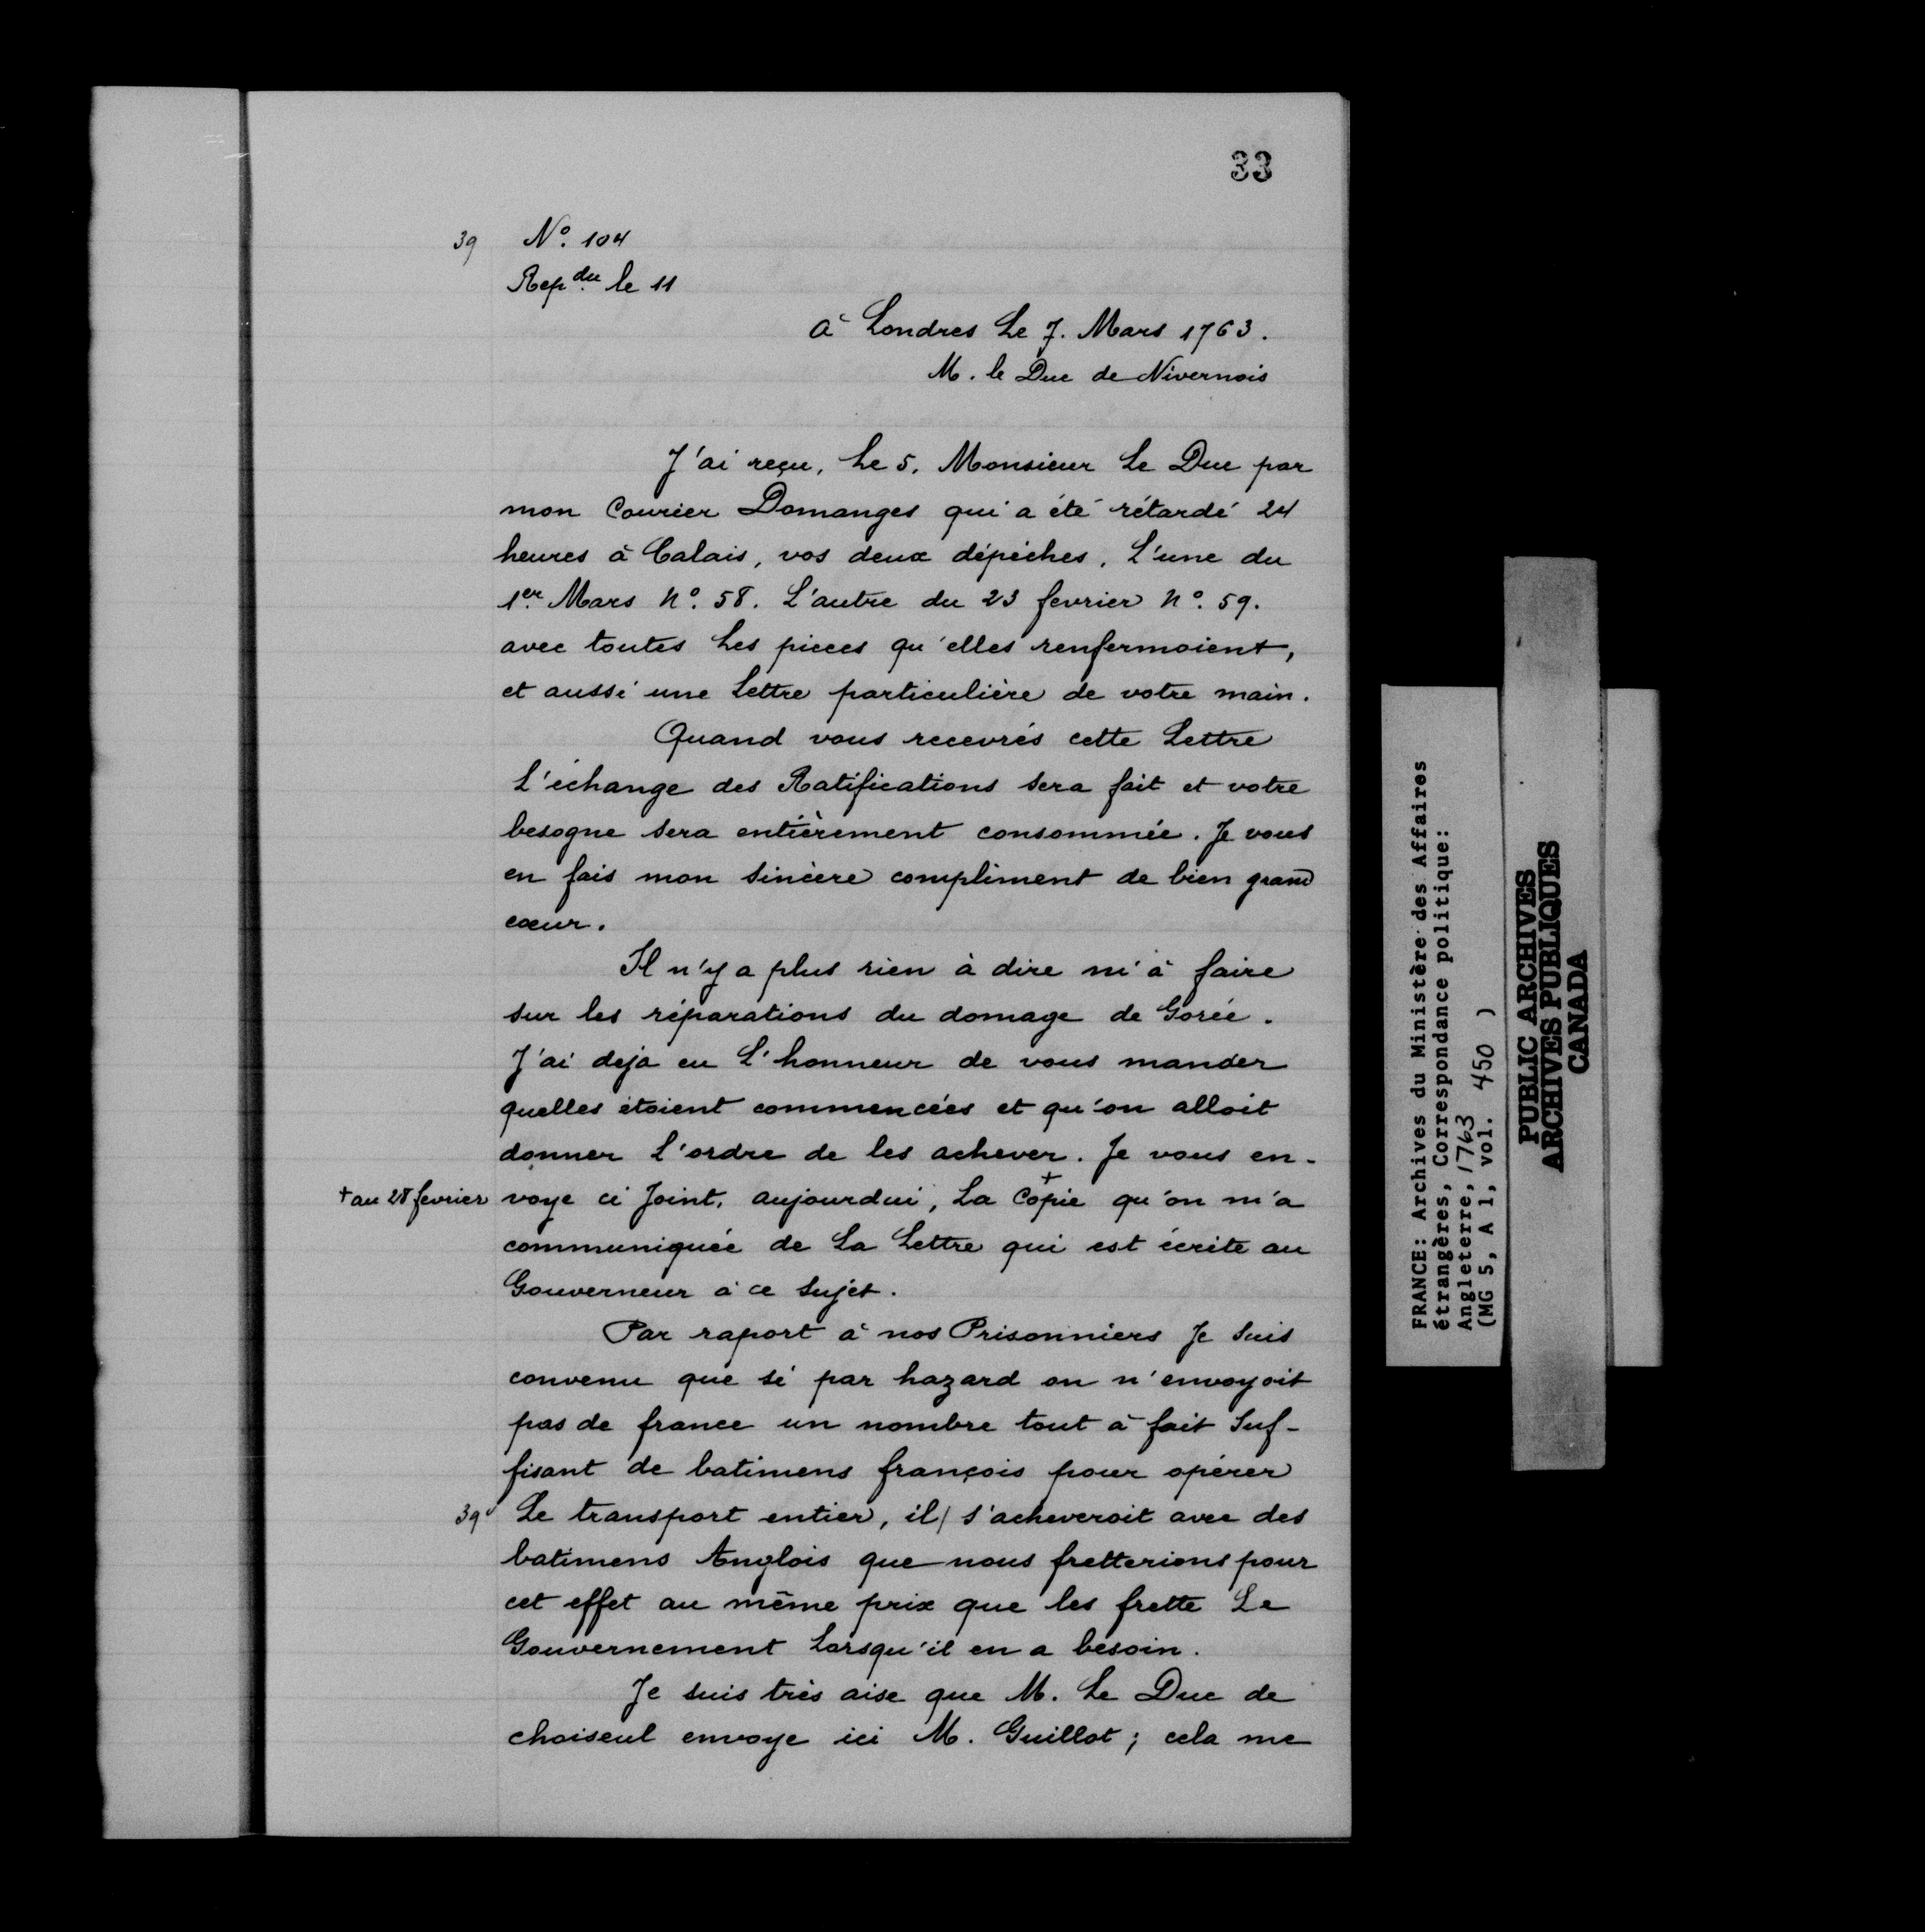 33
39 Nº. 104
Rep.du le 11
à Londres Le 7. Mars 1763.
M. le Duc de Nivernois
J'ai reçu, Le 5. Monsieur Le Duc par
mon Courier Domanges qui a été rétardé 24
heures à Calais, vos deux dépêches, L'une du
1er. Mars Nº. 58. L'autre du 23 fevrier Nº. 59.
avec toutes Les pieces qu'elles renfermoient,
et aussi une Lettre particulière de votre main.
Quand vous recevrés cette Lettre
L'échange des Ratifications Sera fait et votre
besogne Sera entièrement consommée. Je vous
en fais mon Sincère compliment de bien grand
cœur.
Il n'y a plus rien à dire ni à faire
sur les réparations du domage de Gorée.
J'ai deja eu L'honneur de vous mander
quelles étoient commencées et qu'on alloit
donner L'ordre de les achever. Je vous en-
+ au 28 fevrier voye ci Joint, aujourdui, La Copie + qu'on m'a
communiquée de La Lettre qui est écrite au
Gouverneur à ce Sujet.
Par raport à nos Prisonniers Je Suis
convenu que si par hazard on n'envoyoit
pas de france un nombre tout à fait Suf-
fisant de batimens françois pour opérer
39v Le transport entier, il/ s'acheveroit avec des
batimens Anglois que nous fretterions pour
cet effet au même prix que les frette Le
Gouvernement Lorsqu'il en a besoin.
Je suis très aise que M. Le Duc de
choiseul envoye ici M. Guillot; cela me
FRANCE: Archives du Ministère des Affaires
étrangères, Correspondance politique:
Angleterre, 1763
(MG 5, A 1, vol. 450 )
PUBLIC ARCHIVES
ARCHIVES PUBLIQUES
CANADA